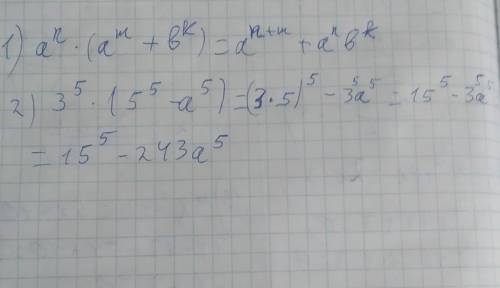 1) aⁿ · (aᵐ + вᵏ) = aⁿ⁺ᵐ + aⁿвᵏ
2) 3⁵ · (5⁵ - a⁵) = (3·5)⁵ - 3⁵a⁵ = 15⁵ - 3⁵a⁵
= 15⁵ - 243a⁵